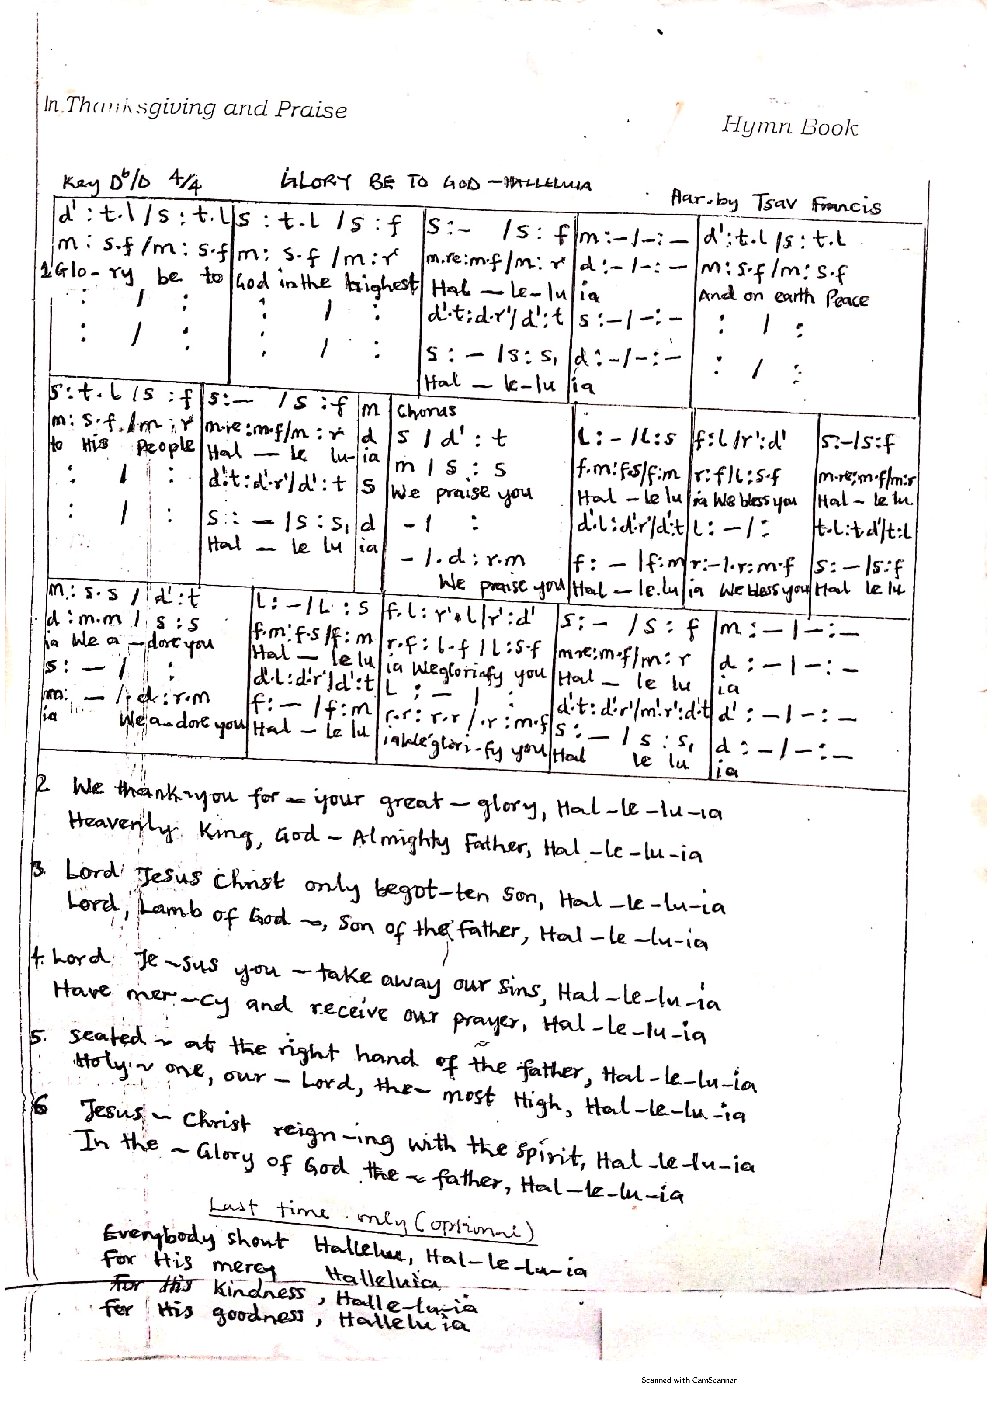 In Thanksgiving and Praise
Hymn Book
Key Db/D 4/4 GLORY BE TO GOD – HALLELUIA
Aar. by Tsav Francis
d' : t.l / s : t.l | s : t.l / s : f | s : – / s : f | m : – / – : – | d' : t.l / s : t.l
m : s.f / m : s.f | m : s.f / m : r | m.re : m.f / m : r | d : – / – : – | m : s.f / m : s.f
1 Glo – ry be to | God in the highest | Hal – le – lu | ia | And on earth Peace
: / : | : / : | d'.t : d'.r' / d' : t | s : – / – : – | : / :
: / : | : / : | s : – / s : s, | d : – / – : – | : / :
Hal – le – lu | ia
s : t.l / s : f | s : – / s : f | m | Chorus
m : s.f / m : r | m.re : m.f / m : r | d | s / d' : t | l : – / l : s | f : l / r' : d' | s : – / s : f
to His People | Hal – le lu – | ia | m / s : s | f.m : f.s / f : m | r : f / l : s.f | m.re : m.f / m : r
: / : | d'.t : d'.r' / d' : t | s | We praise you | Hal – le lu | ia We bless you | Hal – le lu
: / : | s : – / s : s, | d | – / : | d'.l : d'.r' / d' : t | l : – / : | t.l : t.d' / t : l
Hal – le lu | ia | – / . d : r.m | f : – / f : m | r : – / . r : m.f | s : – / s : f
We praise you | Hal – le. lu | ia We bless you | Hal le lu
m : s.s / d' : t | l : – / l : s | f.l : r'.l / r' : d' | s : – / s : f | m : – / – : –
d : m.m / s : s | f.m : f.s / f : m | r.f : l.f / l : s.f | m.re : m.f / m : r | d : – / – : –
ia We a – dore you | Hal – le lu | ia We glorify you | Hal – le lu | ia
s : – / : | d'.l : d'.r' / d' : t | l : – / : | d'.t : d'.r' / m'.r' : d'.t | d' : – / – : –
m : – / . d : r.m | f : – / f : m | r.r : r.r / . r : m.f | s : – / s : s, | d : – / – : –
ia We a – dore you | Hal – le lu | ia We glori – fy you | Hal le lu | ia
2 We thank – you for – your great – glory, Hal – le – lu – ia
Heavenly King, God – Almighty Father, Hal – le – lu – ia
3. Lord Jesus Christ only begot – ten son, Hal – le – lu – ia
Lord, Lamb of God –, Son of the Father, Hal – le – lu – ia
4. Lord Je – sus you – take away our sins, Hal – le – lu – ia
Have mer – cy and receive our prayer, Hal – le – lu – ia
5. seated – at the right hand of the father, Hal – le – lu – ia
Holy – one, our – Lord, the – most High, Hal – le – lu – ia
6 Jesus – Christ reign – ing with the spirit, Hal – le – lu – ia
In the – Glory of God the – father, Hal – le – lu – ia
Last time only (optional)
Everybody shout Hallelu, Hal – le – lu – ia
For His mercy Halleluia
For His kindness, Halle – lu – ia
For His goodness, Halleluia
Scanned with CamScanner